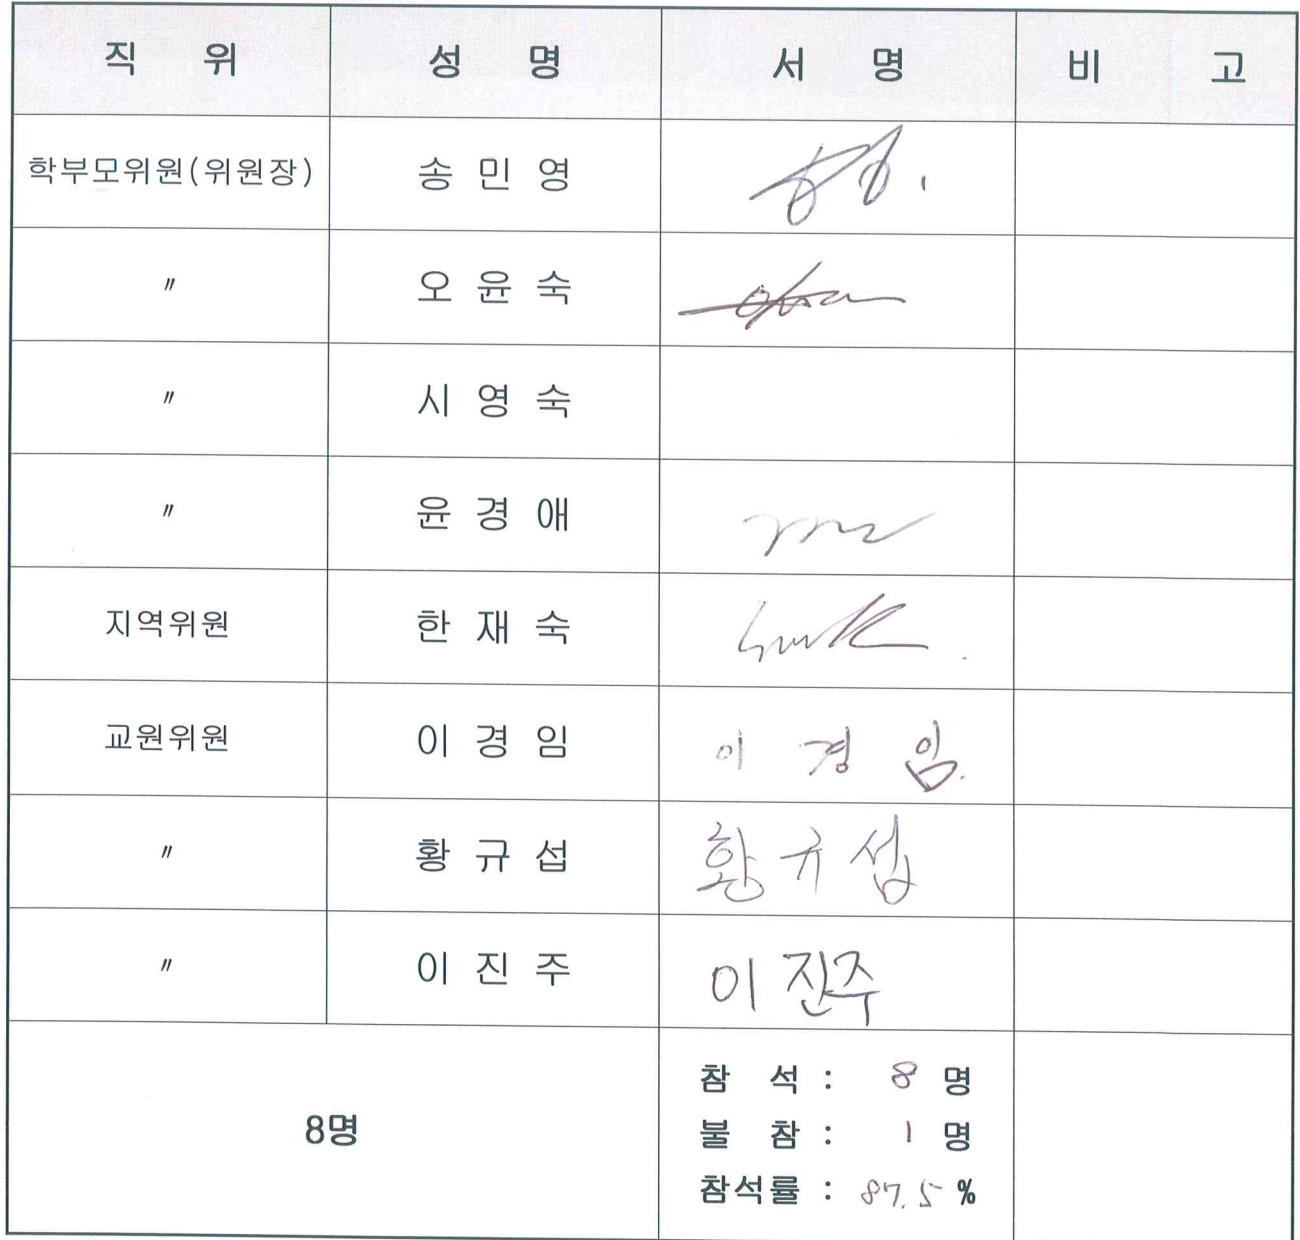 직 위 성 명 서 명 비 고
학부모위원(위원장) 송 민 영
〃 오 윤 숙
〃 시 영 숙
〃 윤 경 애
지역위원 한 재 숙
교원위원 이 경 임 이 경 임.
〃 황 규 섭 황 규 섭
〃 이 진 주 이 진주
8명
참 석 : 8 명
불 참 : 1 명
참석률 : 87.5 %